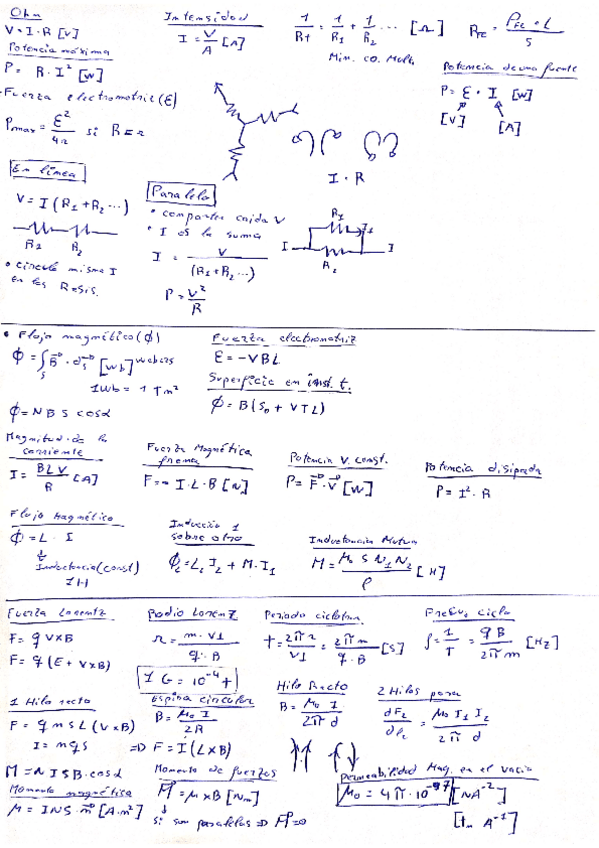 Ohm
V=I·R [V]
Potencia máxima
P = R·I² [W]
Intensidad
I = V/A [A]
1/RT = 1/R1 + 1/R2 ... [Ω]
Min. co. Mult.
R_FE = ρ_FE · L / S
Potencia de una fuente
P = ε · I [W]
[V] [A]
·Fuerza electromotriz (ε)
Pmax = ε²/4r si R=r
I · R
En línea
V = I (R1 + R2 ...)
R1 R2
• circula misma I
en las Resis.
Paralelo
• comparten caida V
• I es la suma
I = V/(R1+R2...)
P = V²/R
R1
I I1 I
R2
• Flujo magnético (ϕ)
ϕ = ∫s B · ds [Wb] Webers
1Wb = 1 Tm²
ϕ = N B S cosα
Fuerza electromotriz
ε = -VBL
Superficie en inst. t.
ϕ = B(S0 + VTL)
Magnitud de la
corriente
I = BLV/R [A]
Fuerza Magnética
frena
F = I·L·B [N]
Potencia V. const.
P = F·V [W]
Potencia disipada
P = I²·R
Flujo Magnético
ϕ = L · I
Inductancia (const)
1H
Inducción 1
sobre otro
ϕ2 = L2 I2 + M·I1
Inductancia Mutua
M = μ0 S N1 N2 / ℓ [H]
Fuerza Lorentz
F = q V×B
F = q (E + V×B)
Radio Lorenz
r = m·V⊥ / q·B
1 G = 10⁻⁴ T
Periodo ciclotron
T = 2πr/V⊥ = 2πm/q·B [S]
Frecu. ciclo
f = 1/T = qB/2πm [Hz]
1 Hilo recto
F = q n S L (V×B)
I = nqS => F = I(L×B)
Espira circular
B = μ0 I / 2R
Hilo Recto
B = μ0 I / 2π d
2 Hilos para
dF2/dℓ2 = μ0 I1 I2 / 2π d
M = N I S B · cosα
Momento magnético
μ = INS·n [A·m²]
Momento de fuerzas
M = μ×B [Nm]
si son paralelos => M=0
Permeabilidad Mag. en el vacio
μ0 = 4π·10⁻⁷ [NA⁻²]
[Tm A⁻¹]